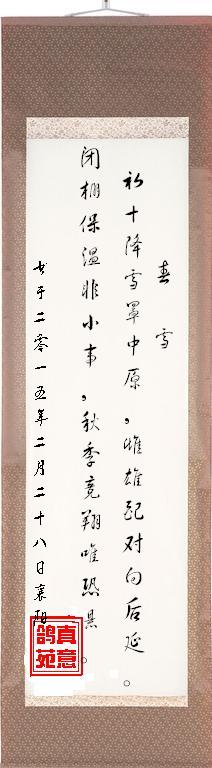 春雪
初十降雪罩中原，雌雄配对向后延。
闭棚保温非小事，秋季竞翔唯恐晨。
书于二零一五年二月二十八日襄阳
真意
鸽苑